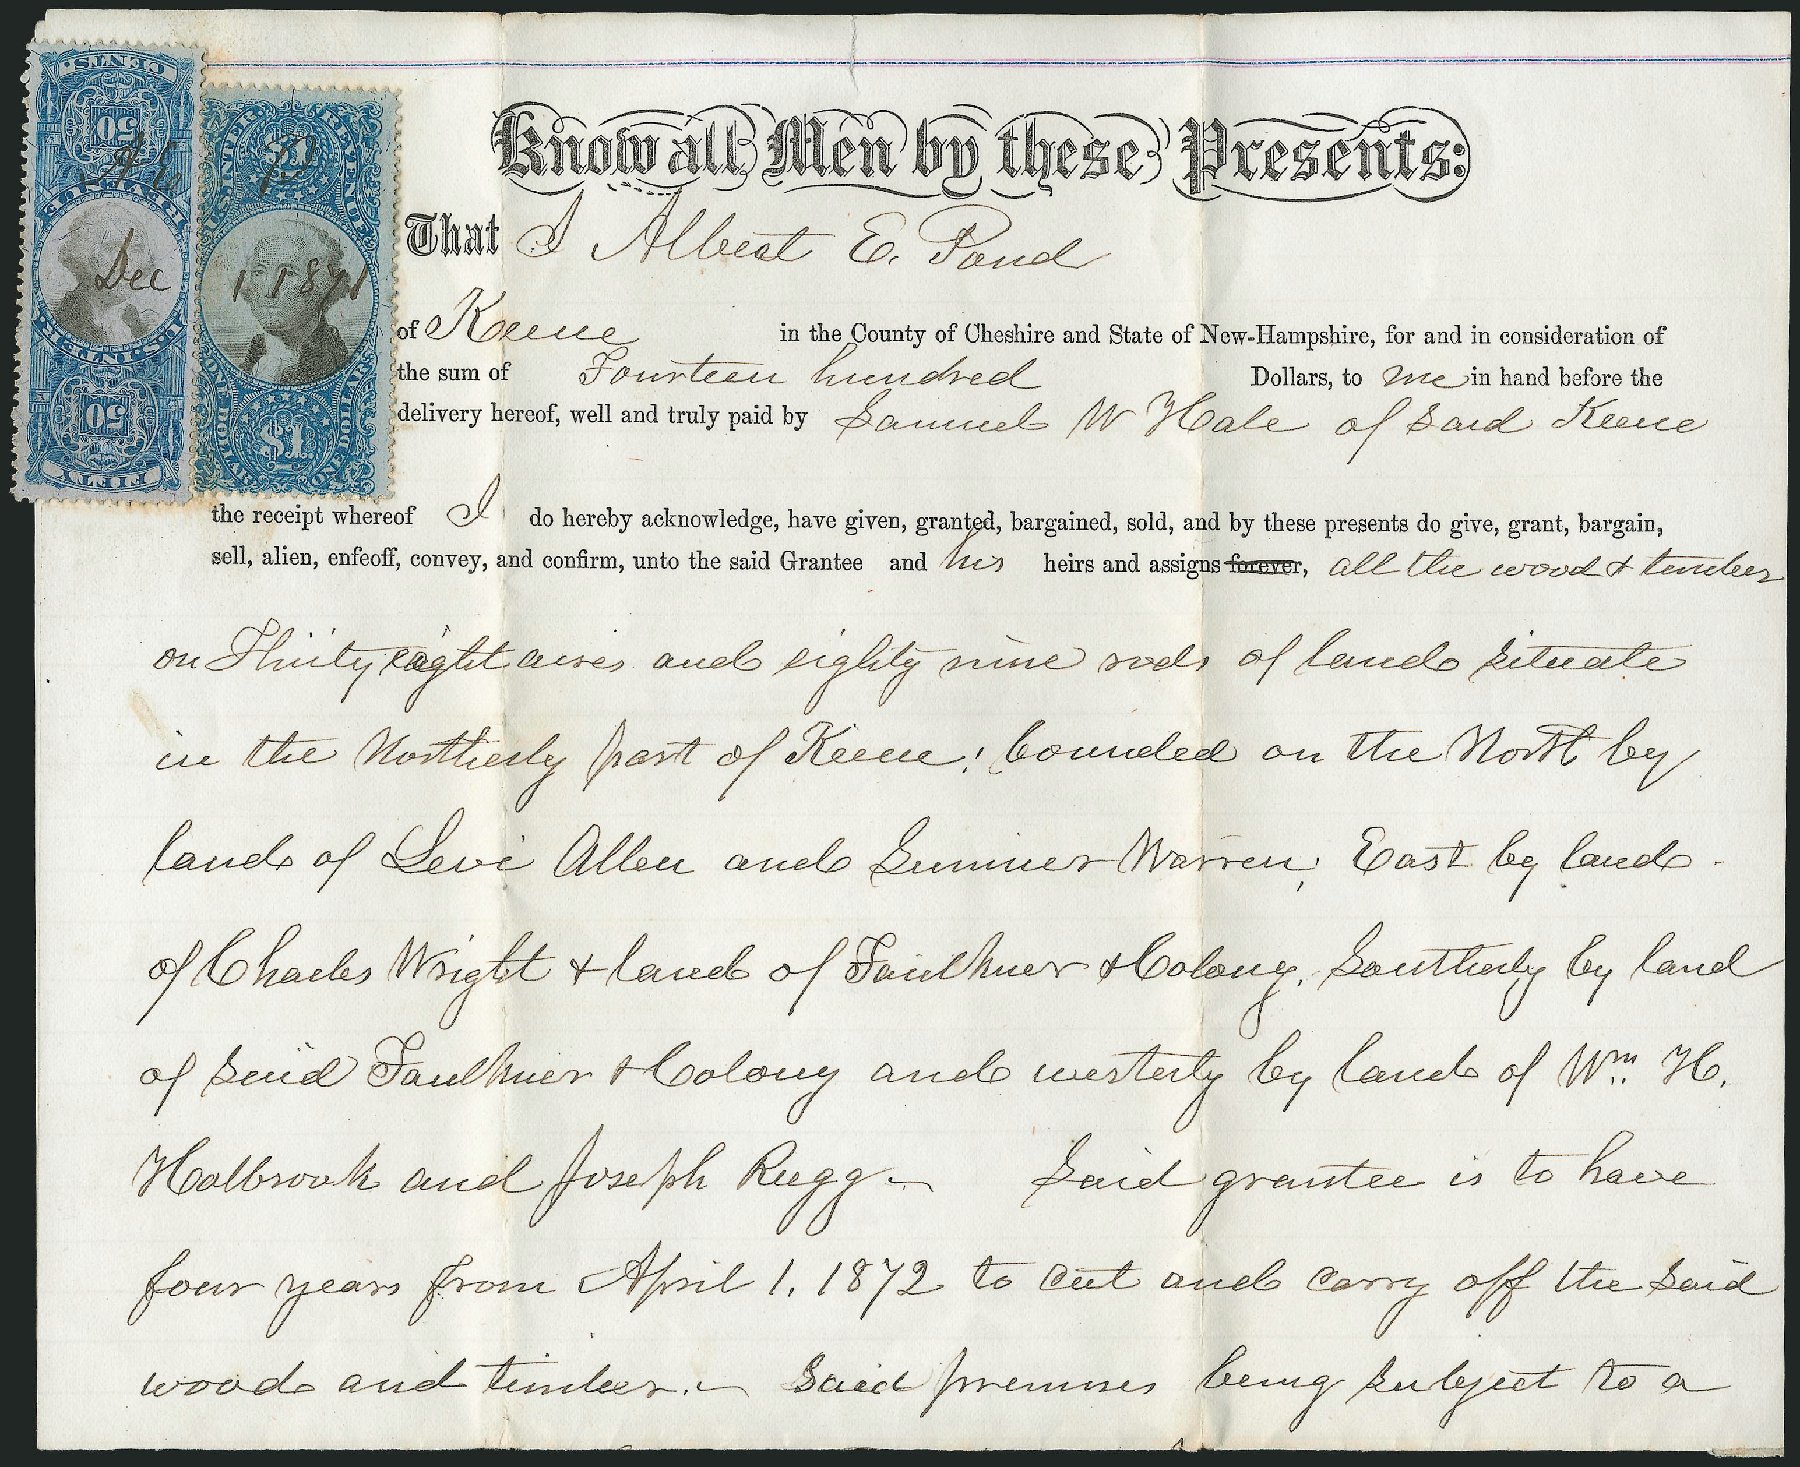 Know all Men by these Presents:
That I Albert E. Pond
of Keene in the County of Cheshire and State of New-Hampshire, for and in consideration of
the sum of Fourteen hundred Dollars, to me in hand before the
delivery hereof, well and truly paid by Samuel W Hale of said Keene
the receipt whereof I do hereby acknowledge, have given, granted, bargained, sold, and by these presents do give, grant, bargain,
sell, alien, enfeoff, convey, and confirm, unto the said Grantee and his heirs and assigns forever, all the wood & timber
on Thirty eight acres and eighty nine rods of land situate
in the Northerly part of Keene; bounded on the North by
land of Levi Allen and Sumner Warren, East by land
of Charles Wright & land of Faulkner & Colony, Southerly by land
of said Faulkner & Colony and westerly by land of Wm. H.
Holbrook and Joseph Rugg. Said grantee is to have
four years from April 1. 1872 to cut and carry off the said
wood and timber. Said premises being subject to a
FIFTY CENTS
50
U.S. INTER. REVENUE
50
Dec
INTER. REVENUE
$1
ONE DOLLAR
1 1871